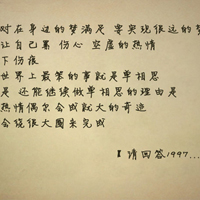 对在身边的梦满足 要实现很远的梦
让自己累 伤心 空虚的热情
下伤痕
世界上最笨的事就是单相思
是 还能继续做单相思的理由是
热情偶尔会成就大的奇迹
会绕很大圈来完成
【请回答1997...